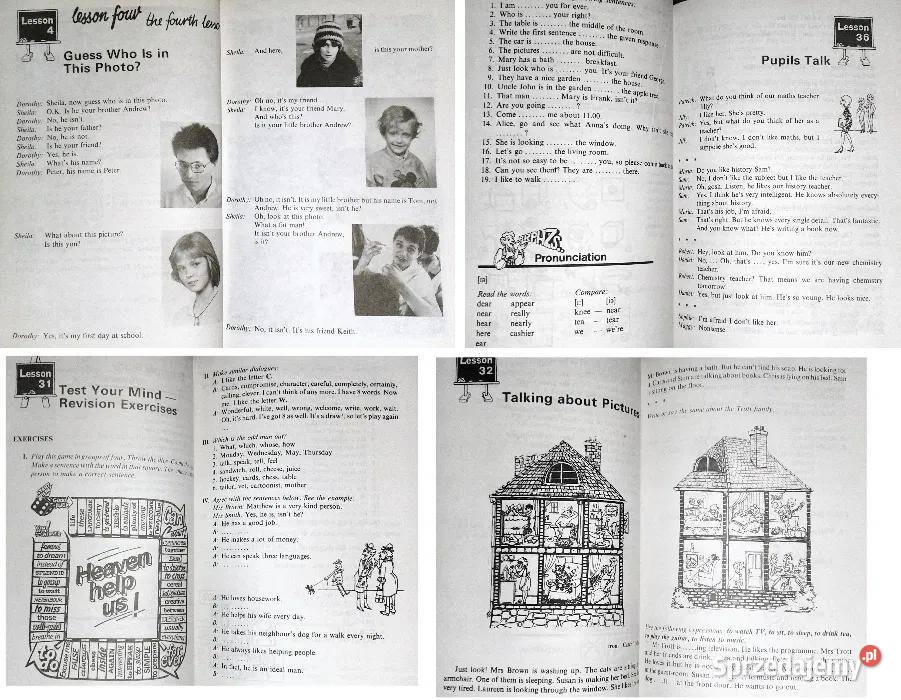 Lesson
4
lesson four the fourth
Guess Who Is in
This Photo?
Dorothy: Sheila, now guess who is in this photo.
Sheila: O.K. Is he your brother Andrew?
Dorothy: No, he isn't.
Sheila: Is he your father?
Dorothy: No, he is not.
Sheila: Is he your friend?
Dorothy: Yes, he is.
Sheila: What's his name?
Dorothy: Peter, his name is Peter.
Sheila: What about this picture?
Is this you?
Dorothy: Yes, it's my first day at school.
Sheila: And here, is this your mother?
Dorothy: Oh no, it's my friend
Sheila: I know, it's your friend Mary.
And who's this?
Is it your little brother Andrew?
Dorothy: Uh no, it isn't. It is my little brother but his name is Tom, not
Andrew. He is very sweet, isn't he?
Sheila: Oh, look at this photo.
What a fat man!
It isn't your brother Andrew,
is it?
Dorothy: No, it isn't. It's his friend Keith.
sentences:
1. I am ........ you for ever.
2. Who is ........ your right?
3. The table is ........ the middle of the room.
4. Write the first sentence ........ the given response.
5. The car is ........ the house.
6. The pictures ........ are not difficult.
7. Mary has a bath ........ breakfast.
8. Just look who is ........ you. It's your friend George.
9. They have a nice garden ........ the house.
10. Uncle John is in the garden ........ the apple tree.
11. That man ........ Mary is Frank, isn't it?
12. Are you going ........ ?
13. Come ........ me about 11.00.
14. Alice, go and see what Anna's doing. Why
........ ?
15. She is looking ........ the window.
16. Let's go ........ the living room.
17. It's not so easy to be ........ you, so please come
18. Can you see them? They are ........ there.
19. I like to walk ........
Pronunciation
Read the words:
dear appear
near really
hear nearly
here cashier
ear
Compare:
knee – near
tea – tear
we – we're
Lesson
36
Pupils Talk
Patrick: What do you think of our maths teacher
Jilly?
Jilly: I like her. She's pretty.
Patrick: Yes, but what do you think of her as a
teacher?
Jilly: I don't know. I don't like maths, but I
suppose she's good.
* * *
Maria: Do you like history Sam?
Sam: No, I don't like the subject but I like the teacher.
Maria: Oh, gosh. Listen, he likes our history teacher.
Sam: Yes, I think he's very intelligent. He knows absolutely every-
thing about history.
Maria: That's his job, I'm afraid.
Sam: That's right. But he knows every single detail. That's fantastic.
And you know what? He's writing a book now.
* * *
Robert: Hey, look at him. Do you know him?
Daniel: No, ... Oh, that's ... yes, I'm sure it's our new chemistry
teacher.
Robert: Chemistry teacher? That means we are having chemistry
tomorrow.
Daniel: Yes, but just look at him. He's so young. He looks nice.
* * *
I'm afraid I don't like her.
Nonsense
Lesson
31
Test Your Mind —
Revision Exercises
EXERCISES
I. Play this game in groups of four. Throw the dice.
Make a sentence with the word in that square. The
person to make a correct sentence.
Heaven
help
us!
famous
to dream
instead of
to gossip
to wait
NEIGHBOUR
to miss
those
well-paid
breathe in
to go
for ever
II. Make similar dialogues:
A: I like the letter C.
B: Cards, compromise, character, careful, completely, certainly,
calling, clever. I can't think of any more. I have 8 words. Now
me. I like the letter W.
A: Wonderful, white, well, wrong, welcome, write, work, wait.
Oh, it's hard. I've got 8 as well. It's a draw!, so let's play again
III. Which is the odd man out?
1. What, which, whose, how
2. Monday, Wednesday, May, Thursday
3. talk, speak, tell, feel
4. sandwich, roll, cheese, juice
5. hockey, cards, chess, table
6. tailor, vet, cartoonist, mother
IV. Agree with the sentences below. See the example.
Mrs Brown: Matthew is a very kind person.
Mrs Smith: Yes, he is, isn't he?
A: He has a good job.
B: ..........
A: He makes a lot of money.
B: ..........
A: He can speak three languages.
B: ..........
A: He loves housework.
B: ..........
A: He helps his wife every day.
B: ..........
A: He takes his neighbour's dog for a walk every night.
B: ..........
A: He always likes helping people.
B: ..........
A: In fact, he is an ideal man.
B: ..........
Lesson
32
Talking about Pictures
Just look! Mrs Brown is washing up. The cats are
armchair. One of them is sleeping. Susan is making her bed.
very tired. Laureen is looking through the window. She
Mr Brown is having a bath. But he can't find his soap. He is looking for
Chris are talking about books. Chris is lying on his bed. Sam
is sitting on the floor.
* * *
say the same about the Trott family.
Use the following expressions: to watch TV, to sit, to sleep, to drink tea,
to play the guitar, to listen to music.
Mr Trott is ...... television. He likes the programme. Mrs Trott
and her friends are drink...... and talking.
at the front door. He wants to go out.
Sprzedajemy.pl